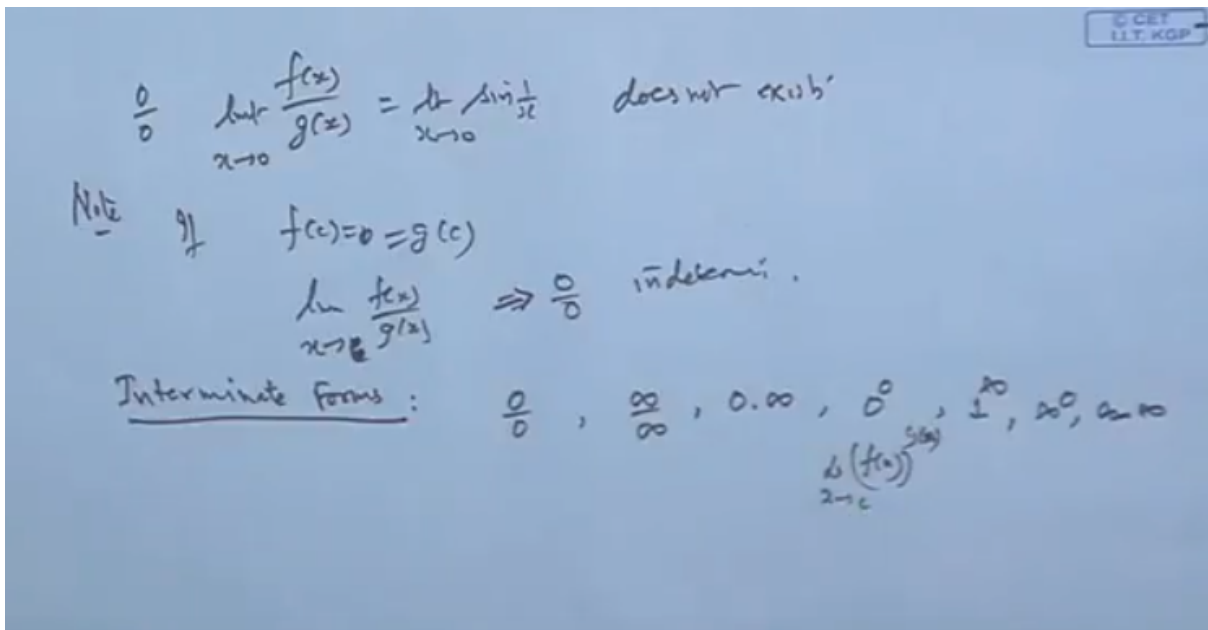 © CET
I.I.T. KGP
0/0 lim x→0 f(x)/g(x) = lt x→0 sin 1/x does not exist
Note If f(c)=0=g(c)
lim x→c f(x)/g(x) ⇒ 0/0 indetermi.
Interminate Forms : 0/0 , ∞/∞ , 0.∞ , 0^0 , 1^∞ , ∞^0 , ∞-∞
lt x→c (f(x))^g(x)